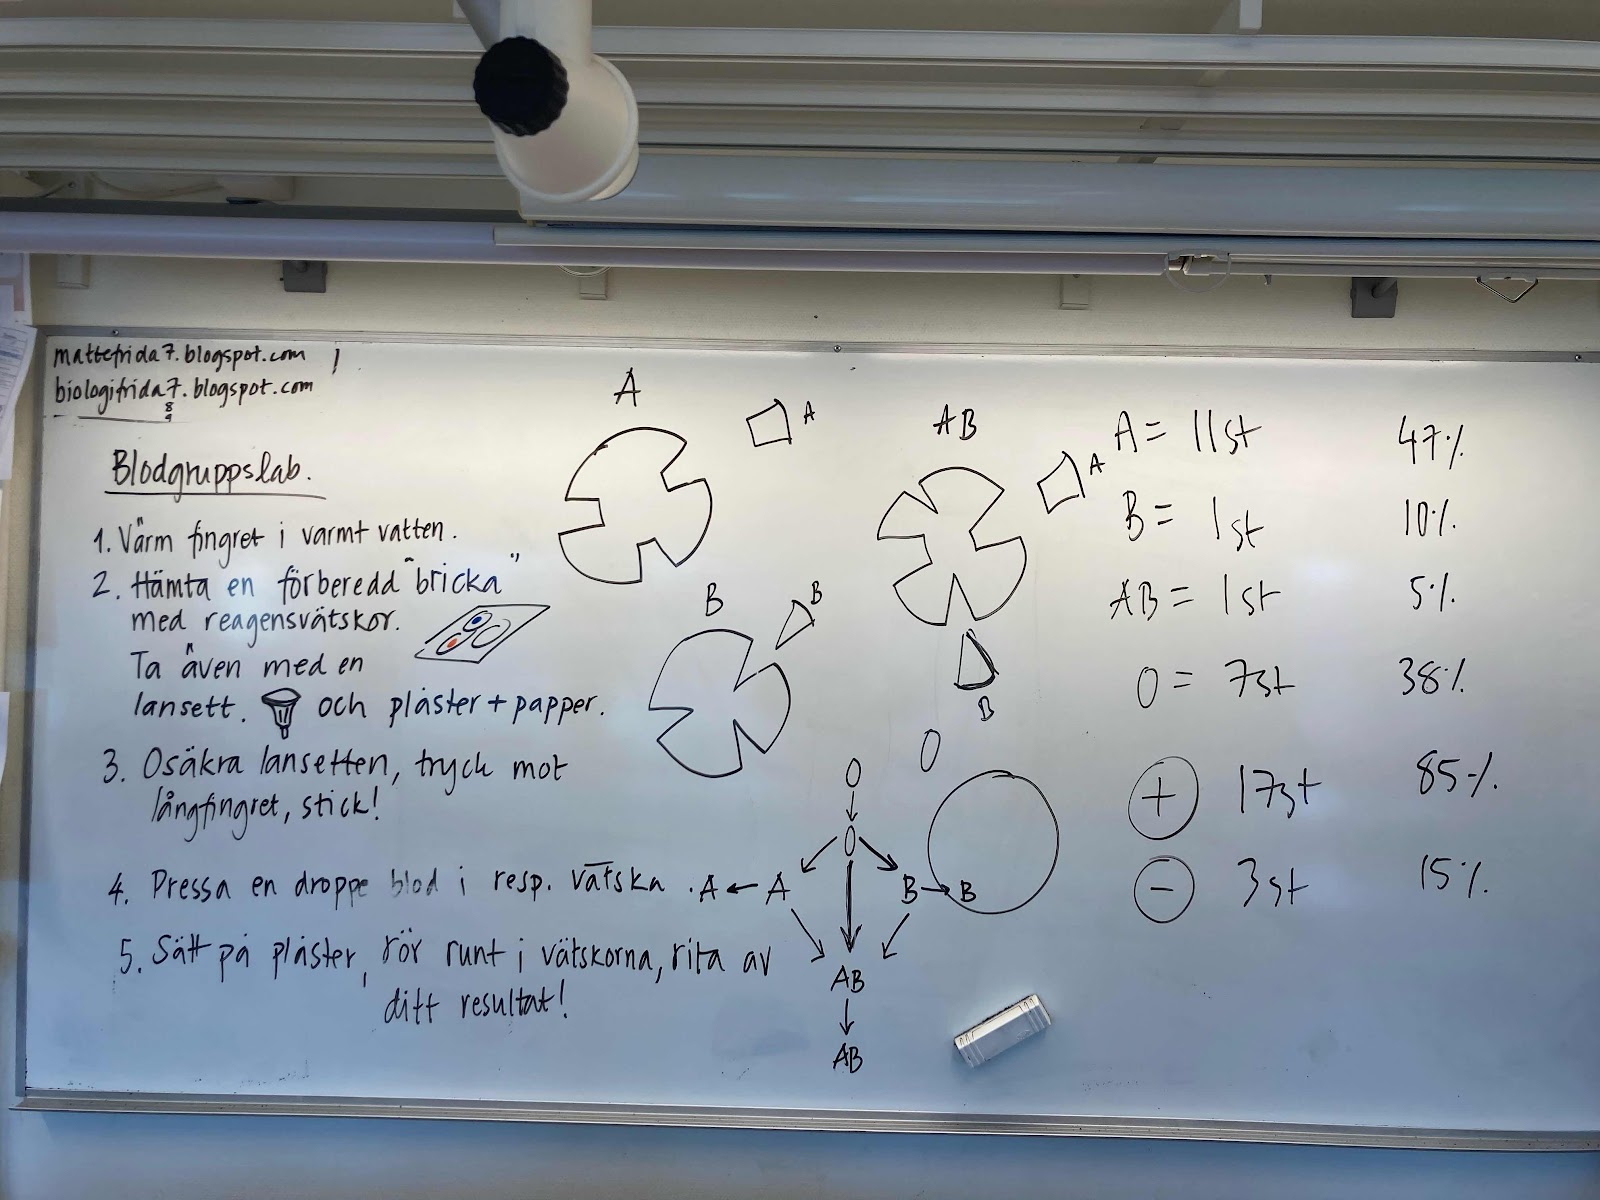 mattefrida7.blogspot.com
biologifrida7.blogspot.com
8
9
Blodgruppslab.
1. Värm fingret i varmt vatten.
2. Hämta en förberedd "bricka"
med reagensvätskor.
Ta även med en
lansett. och plåster + papper.
3. Osäkra lansetten, tryck mot
långfingret, stick!
4. Pressa en droppe blod i resp. vätska.
5. Sätt på plåster, rör runt i vätskorna, rita av
ditt resultat!
A
A
B
B
AB
A
B
O
O
↓
O
A ← A
B → B
AB
↓
AB
A = 11st 47%
B = 1st 10%
AB = 1st 5%
O = 7st 38%
+ 17st 85%
- 3st 15%